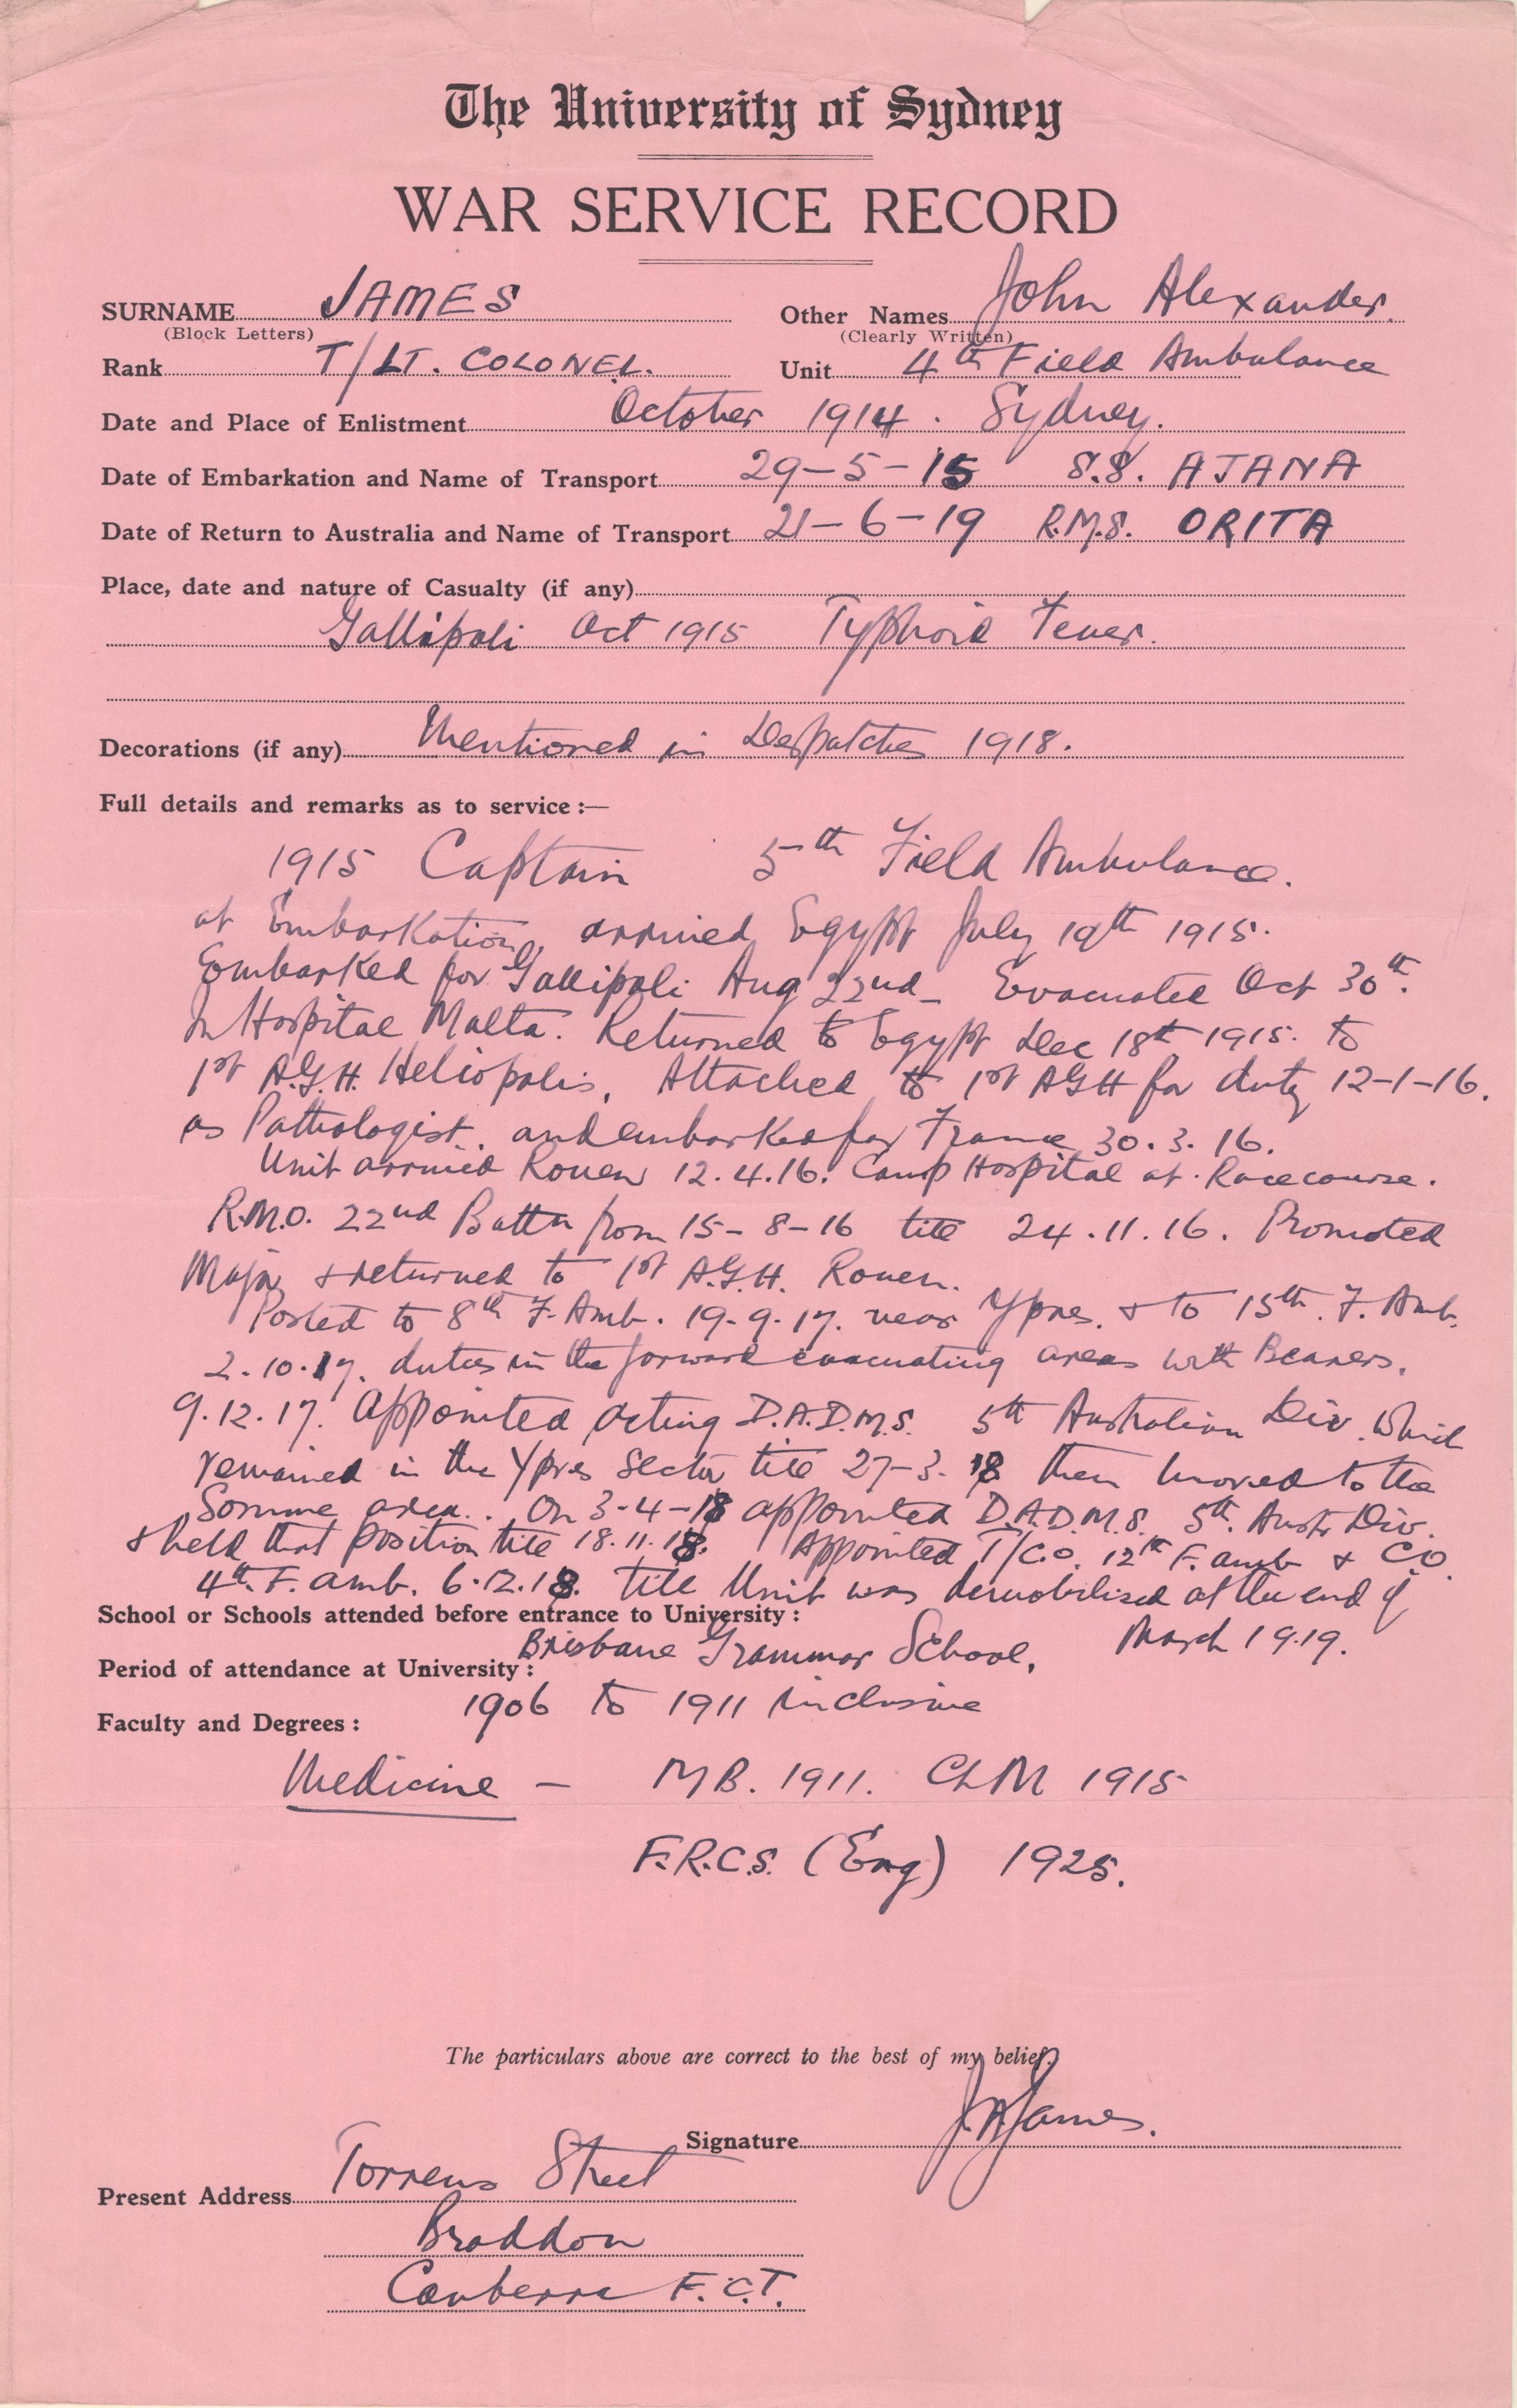 The University of Sydney
WAR SERVICE RECORD
SURNAME JAMES Other Names John Alexander.
(Block Letters) (Clearly Written)
Rank T/LT. COLONEL. Unit 4th Field Ambulance
Date and Place of Enlistment October 1914. Sydney.
Date of Embarkation and Name of Transport 29-5-15 S.S. AJANA
Date of Return to Australia and Name of Transport 21-6-19 R.M.S. ORITA
Place, date and nature of Casualty (if any)
Gallipoli Oct 1915 Typhoid Fever.
Decorations (if any) Mentioned in Despatches 1918.
Full details and remarks as to service:—
1915 Captain 5th Field Ambulance.
at Embarkation, arrived Egypt July 19th 1915.
Embarked for Gallipoli Aug 22nd - Evacuated Oct 30th.
In Hospital Malta. Returned to Egypt Dec 18th 1915. to
1st A.G.H. Heliopolis. Attached to 1st AGH for duty 12-1-16.
as Pathologist. and embarked for France 30.3.16.
Unit arrived Rouen 12.4.16. Camp Hospital at Racecourse.
R.M.O. 22nd Battn from 15-8-16 till 24.11.16. Promoted
Major & returned to 1st A.G.H. Rouen.
Posted to 8th F. Amb. 19-9-17. near Ypres. & to 15th. F. Amb.
2.10.17. duties in the forward evacuating areas with Bearers.
9.12.17. Appointed Acting D.A.D.M.S. 5th Australian Div. Which
remained in the Ypres Sector till 27-3-18 then moved to the
Somme area.. On 3-4-18 appointed D.A.D.M.S. 5th. Austr Div.
& held that position till 18.11.18. Appointed T/C.O. 12th F. amb & CO.
4th. F. amb. 6.12.18. till Unit was demobilised at the end of
School or Schools attended before entrance to University: March 1919.
Brisbane Grammar School.
Period of attendance at University:
1906 to 1911 inclusive
Faculty and Degrees:
Medicine — MB. 1911. ChM 1915
F.R.C.S. (Eng) 1925.
The particulars above are correct to the best of my belief.
Signature J.A.James.
Present Address Torrens Street
Braddon
Canberra F.C.T.